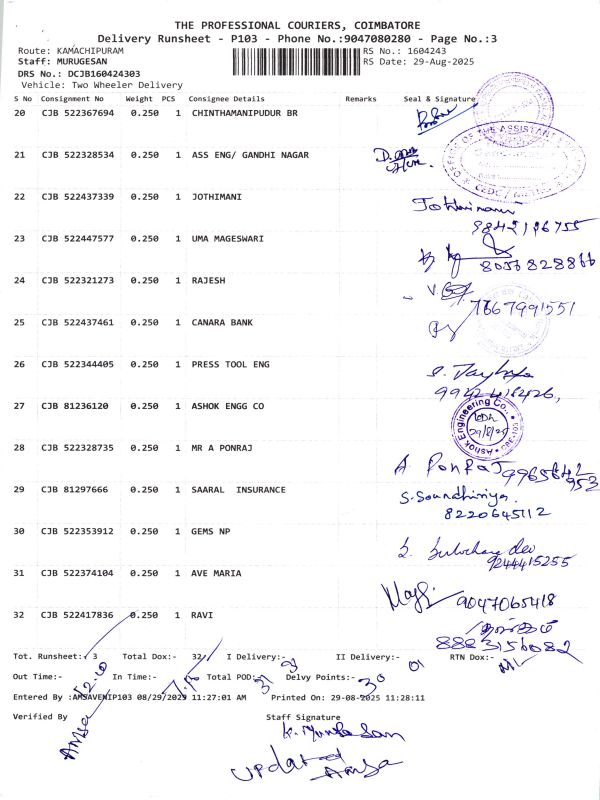 THE PROFESSIONAL COURIERS, COIMBATORE
Delivery Runsheet - P103 - Phone No.:9047080280 - Page No.:3
Route: KAMACHIPURAM RS No.: 1604243
Staff: MURUGESAN RS Date: 29-Aug-2025
DRS No.: DCJB160424303
Vehicle: Two Wheeler Delivery
S No Consignment No Weight PCS Consignee Details Remarks Seal & Signature
20 CJB 522367694 0.250 1 CHINTHAMANIPUDUR BR
21 CJB 522328534 0.250 1 ASS ENG/ GANDHI NAGAR
OFFICE OF THE ASSISTANT
22 CJB 522437339 0.250 1 JOTHIMANI
9842196755
23 CJB 522447577 0.250 1 UMA MAGESWARI
8056828866
24 CJB 522321273 0.250 1 RAJESH
7667991551
25 CJB 522437461 0.250 1 CANARA BANK
26 CJB 522344405 0.250 1 PRESS TOOL ENG
27 CJB 81236120 0.250 1 ASHOK ENGG CO
Ashok Engineering Co.,
29/8/25
28 CJB 522328735 0.250 1 MR A PONRAJ
A. PonRaj
29 CJB 81297666 0.250 1 SAARAL INSURANCE
S. Soundhiriya.
8220645112
30 CJB 522353912 0.250 1 GEMS NP
9244415255
31 CJB 522374104 0.250 1 AVE MARIA
9047065418
32 CJB 522417836 0.250 1 RAVI
8883156082
Tot. Runsheet:- 3 Total Dox:- 32 I Delivery:- II Delivery:- RTN Dox:-
Out Time:- 12.10 In Time:- Total POD: Delvy Points:- 30 01
Entered By :AMSAVENIP103 08/29/2025 11:27:01 AM Printed On: 29-08-2025 11:28:11
Verified By Staff Signature
Amsa
Updated
Amsa